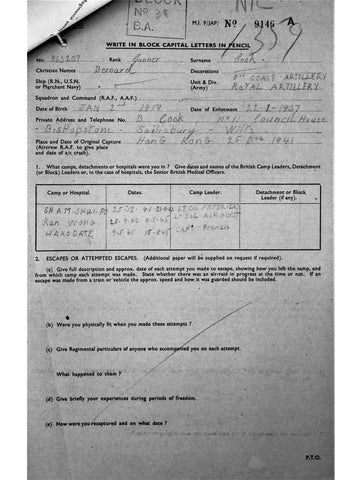 BLOCK
No 58
B.A.
NIL
M.I. 9/JAP/ No 9146 A
WRITE IN BLOCK CAPITAL LETTERS IN PENCIL
No. Rank Gunner Surname Cook
Christian Names Bernard Decorations
Ship (R.N., U.S.N. or Merchant Navy) Unit & Div. (Army) 8th COAST ARTILLERY ROYAL ARTILLERY
Squadron and Command (R.A.F., A.A.F.)
Date of Birth JAN 2nd Date of Enlistment 22-1-1937
Private Address and Telephone No. B. Cook No 11 Council House
Bishopstone Salisbury Wilts
Place and Date of Original Capture Hong Kong 25 Dec 1941
(Aircrew R.A.F. to give place
and date of a/c crash).
1. What camps, detachments or hospitals were you in ? Give dates and names of the British Camp Leaders, Detachment
(or Block) Leaders or, in the case of hospitals, the Senior British Medical Officers.
Camp or Hospital. Dates. Camp Leader. Detachment or Block Leader (if any).
SHAM-SHUI-PO 25-12-41 Lt Col
Kan Wong Lt Col
HAKODATE Capt Francis
2. ESCAPES OR ATTEMPTED ESCAPES. (Additional paper will be supplied on request if required).
(a) Give full description and approx. date of each attempt you made to escape, showing how you left the camp, and
from which camp each attempt was made. State whether there was an air-raid in progress at the time or not. If an
escape was made from a train or vehicle the approx. speed and how it was guarded should be included.
(b) Were you physically fit when you made these attempts ?
(c) Give Regimental particulars of anyone who accompanied you on each attempt.
What happened to them ?
(d) Give briefly your experiences during periods of freedom.
(e) How were you recaptured and on what date ?
P.T.O.